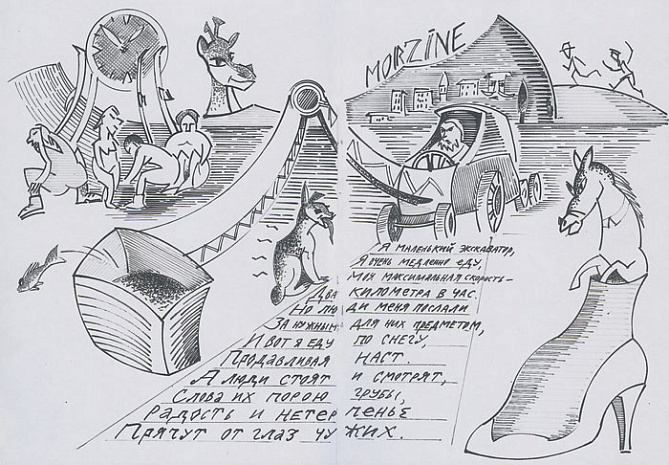 MORZINE
Я МАЛЕНЬКИЙ ЭКСКАВАТОР,
Я ОЧЕНЬ МЕДЛЕННО ЕДУ,
МОЯ МАКСИМАЛЬНАЯ СКОРОСТЬ-
ДВА КИЛОМЕТРА В ЧАС
НО ЛЮДИ МЕНЯ ПОСЛАЛИ
ЗА НУЖНЫМ ДЛЯ НИХ ПРЕДМЕТОМ,
И ВОТ Я ЕДУ ПО СНЕГУ,
ПРОДАВЛИВАЯ НАСТ.
А ЛЮДИ СТОЯТ И СМОТРЯТ,
СЛОВА ИХ ПОРОЮ ГРУБЫ,
РАДОСТЬ И НЕТЕРПЕНЬЕ
ПРЯЧУТ ОТ ГЛАЗ ЧУЖИХ.